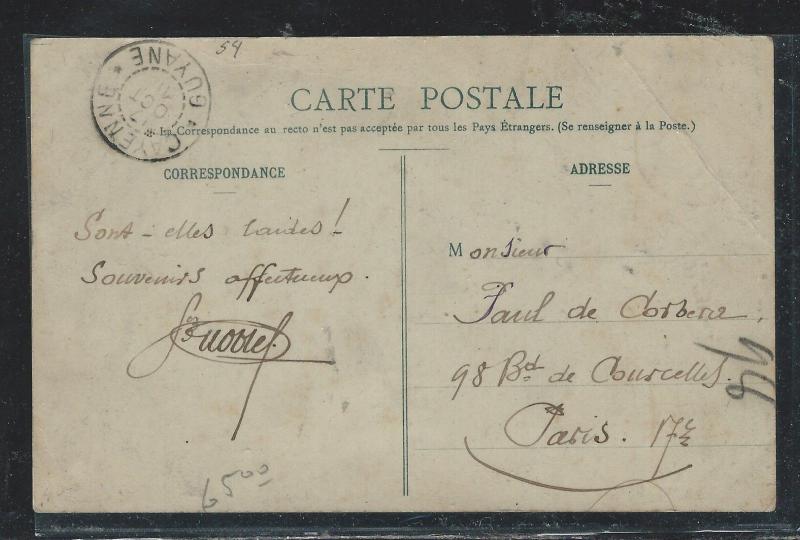 54
GUYANE
CAYENNE
CARTE POSTALE
* La Correspondance au recto n'est pas acceptée par tous les Pays Étrangers. (Se renseigner à la Poste.)
CORRESPONDANCE
ADRESSE
Sont-elles laides!
Souvenirs affectueux.
Monsieur
Paul de Corbera,
98 Bd de Courcelles.
Paris. 17e
6500